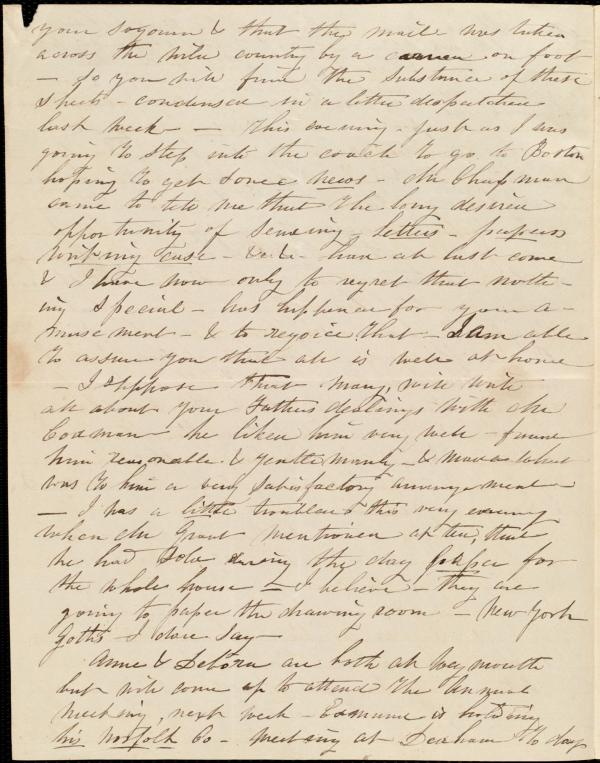 your sojourn & that the mail was taken
across the wild country by a man on foot
— so you will find the substance of these
sheets - condensed in a letter despatched
last week — This evening - just as I was
going to step into the coach to go to Boston
hoping to get some news - Mr Chapman
came to tell me that the long desired
opportunity of sending - letters - papers
writing case - &c &c - has at last come
& I have now only to regret that noth-
ing special - has happened for your a-
musement - & to rejoice that - I am able
to assure you that all is well at home
— I suppose that Mary, will write
all about your Fathers dealings with Mr
Codman - he liked him very well - found
him reasonable & gentlemanly - & made what
was to him a very satisfactory arrangement
— I was a little troubled this very evening
when Mr Grant mentioned at tea, that
he had sold during the day paper for
the whole house — I believe - they are
going to paper the drawing room - New York
Goths I dare say —
Anne & Debora are both at Weymouth
but will come up to attend the Annual
meeting, next week - Edmund is holding
his Norfolk Co - meeting at Dedham to day